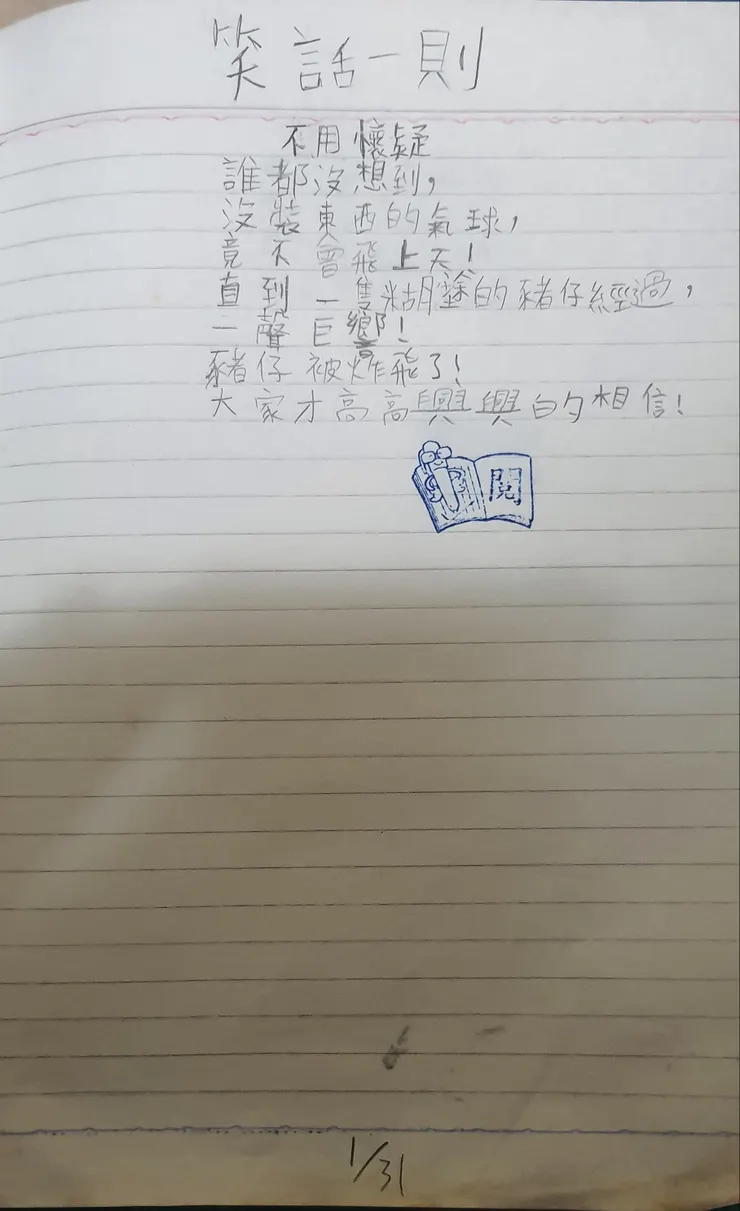 笑話一則
不用懷疑
誰都沒想到，
沒裝東西的氣球，
竟不會飛上天！
直到一隻糊塗的豬仔經過，
一聲巨響！
豬仔被炸飛了！
大家才高高興興的相信！
閱
1/31